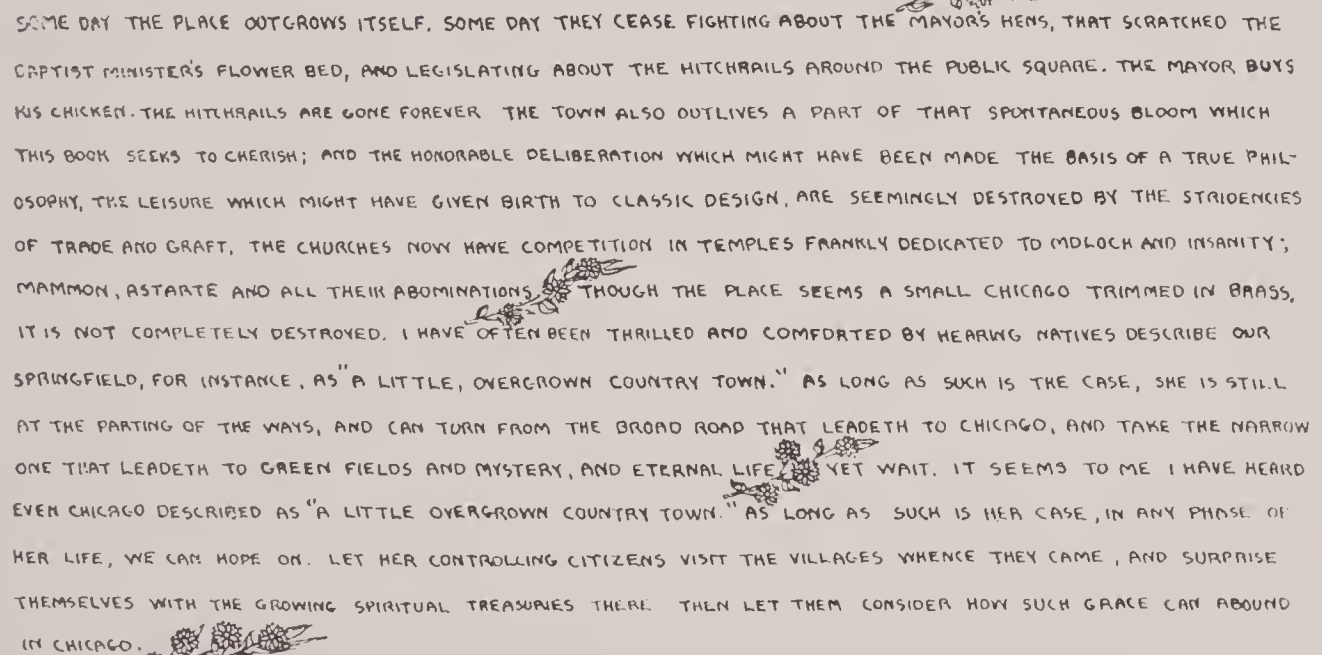 SOME DAY THE PLACE OUTGROWS ITSELF. SOME DAY THEY CEASE FIGHTING ABOUT THE MAYOR'S HENS, THAT SCRATCHED THE
BAPTIST MINISTER'S FLOWER BED, AND LEGISLATING ABOUT THE HITCHRAILS AROUND THE PUBLIC SQUARE. THE MAYOR BUYS
HIS CHICKEN. THE HITCHRAILS ARE GONE FOREVER THE TOWN ALSO OUTLIVES A PART OF THAT SPONTANEOUS BLOOM WHICH
THIS BOOK SEEKS TO CHERISH; AND THE HONORABLE DELIBERATION WHICH MIGHT HAVE BEEN MADE THE BASIS OF A TRUE PHIL-
OSOPHY, THE LEISURE WHICH MIGHT HAVE GIVEN BIRTH TO CLASSIC DESIGN, ARE SEEMINGLY DESTROYED BY THE STRIDENCIES
OF TRADE AND GRAFT. THE CHURCHES NOW HAVE COMPETITION IN TEMPLES FRANKLY DEDICATED TO MOLOCH AND INSANITY;
MAMMON, ASTARTE AND ALL THEIR ABOMINATIONS THOUGH THE PLACE SEEMS A SMALL CHICAGO TRIMMED IN BRASS,
IT IS NOT COMPLETELY DESTROYED. I HAVE OFTEN BEEN THRILLED AND COMFORTED BY HEARING NATIVES DESCRIBE OUR
SPRINGFIELD, FOR INSTANCE, AS "A LITTLE, OVERGROWN COUNTRY TOWN." AS LONG AS SUCH IS THE CASE, SHE IS STILL
AT THE PARTING OF THE WAYS, AND CAN TURN FROM THE BROAD ROAD THAT LEADETH TO CHICAGO, AND TAKE THE NARROW
ONE THAT LEADETH TO GREEN FIELDS AND MYSTERY, AND ETERNAL LIFE YET WAIT. IT SEEMS TO ME I HAVE HEARD
EVEN CHICAGO DESCRIBED AS "A LITTLE OVERGROWN COUNTRY TOWN." AS LONG AS SUCH IS HER CASE, IN ANY PHASE OF
HER LIFE, WE CAN HOPE ON. LET HER CONTROLLING CITIZENS VISIT THE VILLAGES WHENCE THEY CAME, AND SURPRISE
THEMSELVES WITH THE GROWING SPIRITUAL TREASURIES THERE THEN LET THEM CONSIDER HOW SUCH GRACE CAN ABOUND
IN CHICAGO.